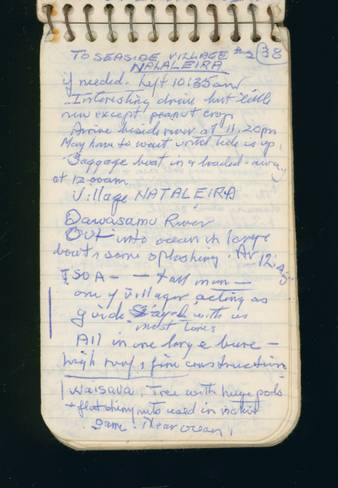 TO SEASIDE VILLAGE #2 38
NATALEIRA
if needed. Left 10:35 am
Interesting drive but little
new except peanut crop
Arrive beside river at 11:20 pm
May have to wait until tide is up.
Baggage boat in & loaded - away
at 12:00 am
Village NATALEIRA
Dawasamu River
Out into ocean in large
boat, some splashing. Ar 12:
ISOA - - tall man -
one of villager acting as
guide with us
most times
All in one large bure -
high roof & fine construction
Waisava. Tree with huge pods
& flat shiny nuts used in native
game. Near ocean.